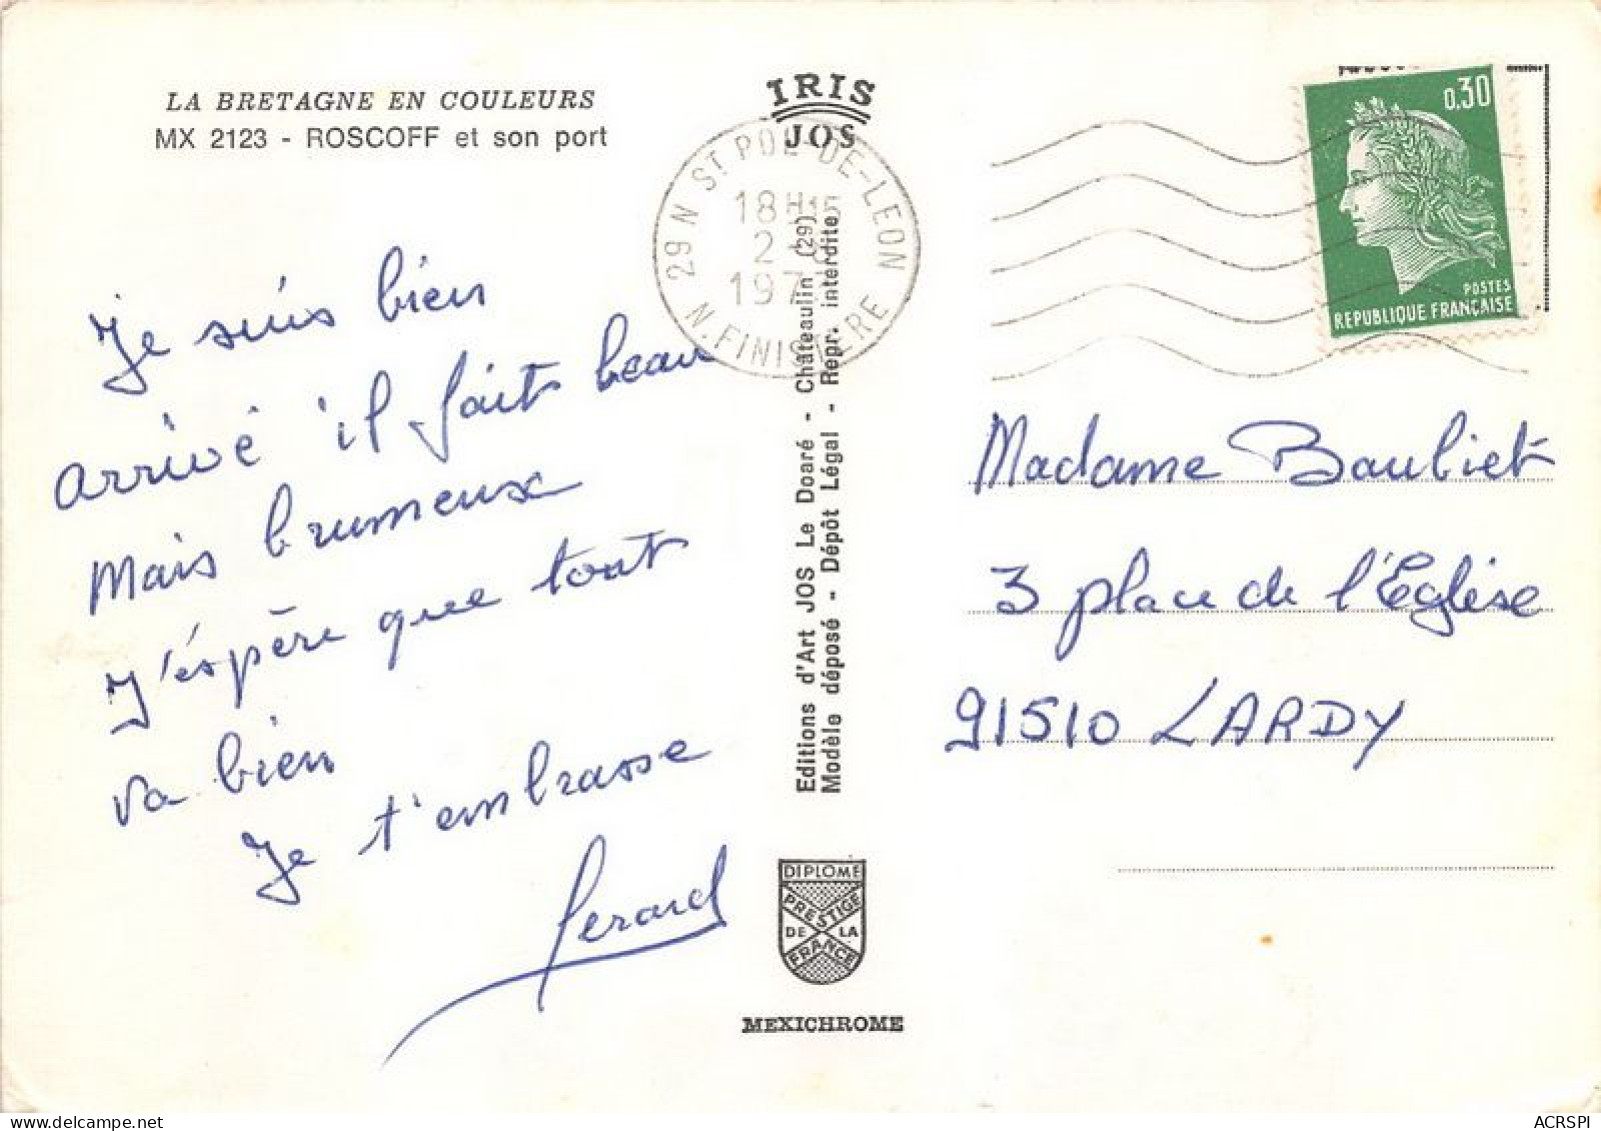 LA BRETAGNE EN COULEURS
MX 2123 - ROSCOFF et son port
IRIS
JOS
29 N ST POL-DE-LEON
18H15
2
197
N. FINISTERE
0,30
POSTES
REPUBLIQUE FRANÇAISE
Je suis bien
arrivé il fait beau
Mais brumeux
J'éspère que tout
va bien
Je t'embrasse
Gerard
Editions d'Art JOS Le Doaré - Châteaulin (29)
Modèle déposé - Dépôt Légal - Repr. interdite
Madame Baubiet
3 place de l'Eglise
91510 LARDY
DIPLOME
PRESTIGE
DE LA
FRANCE
MEXICHROME
ACRSPI